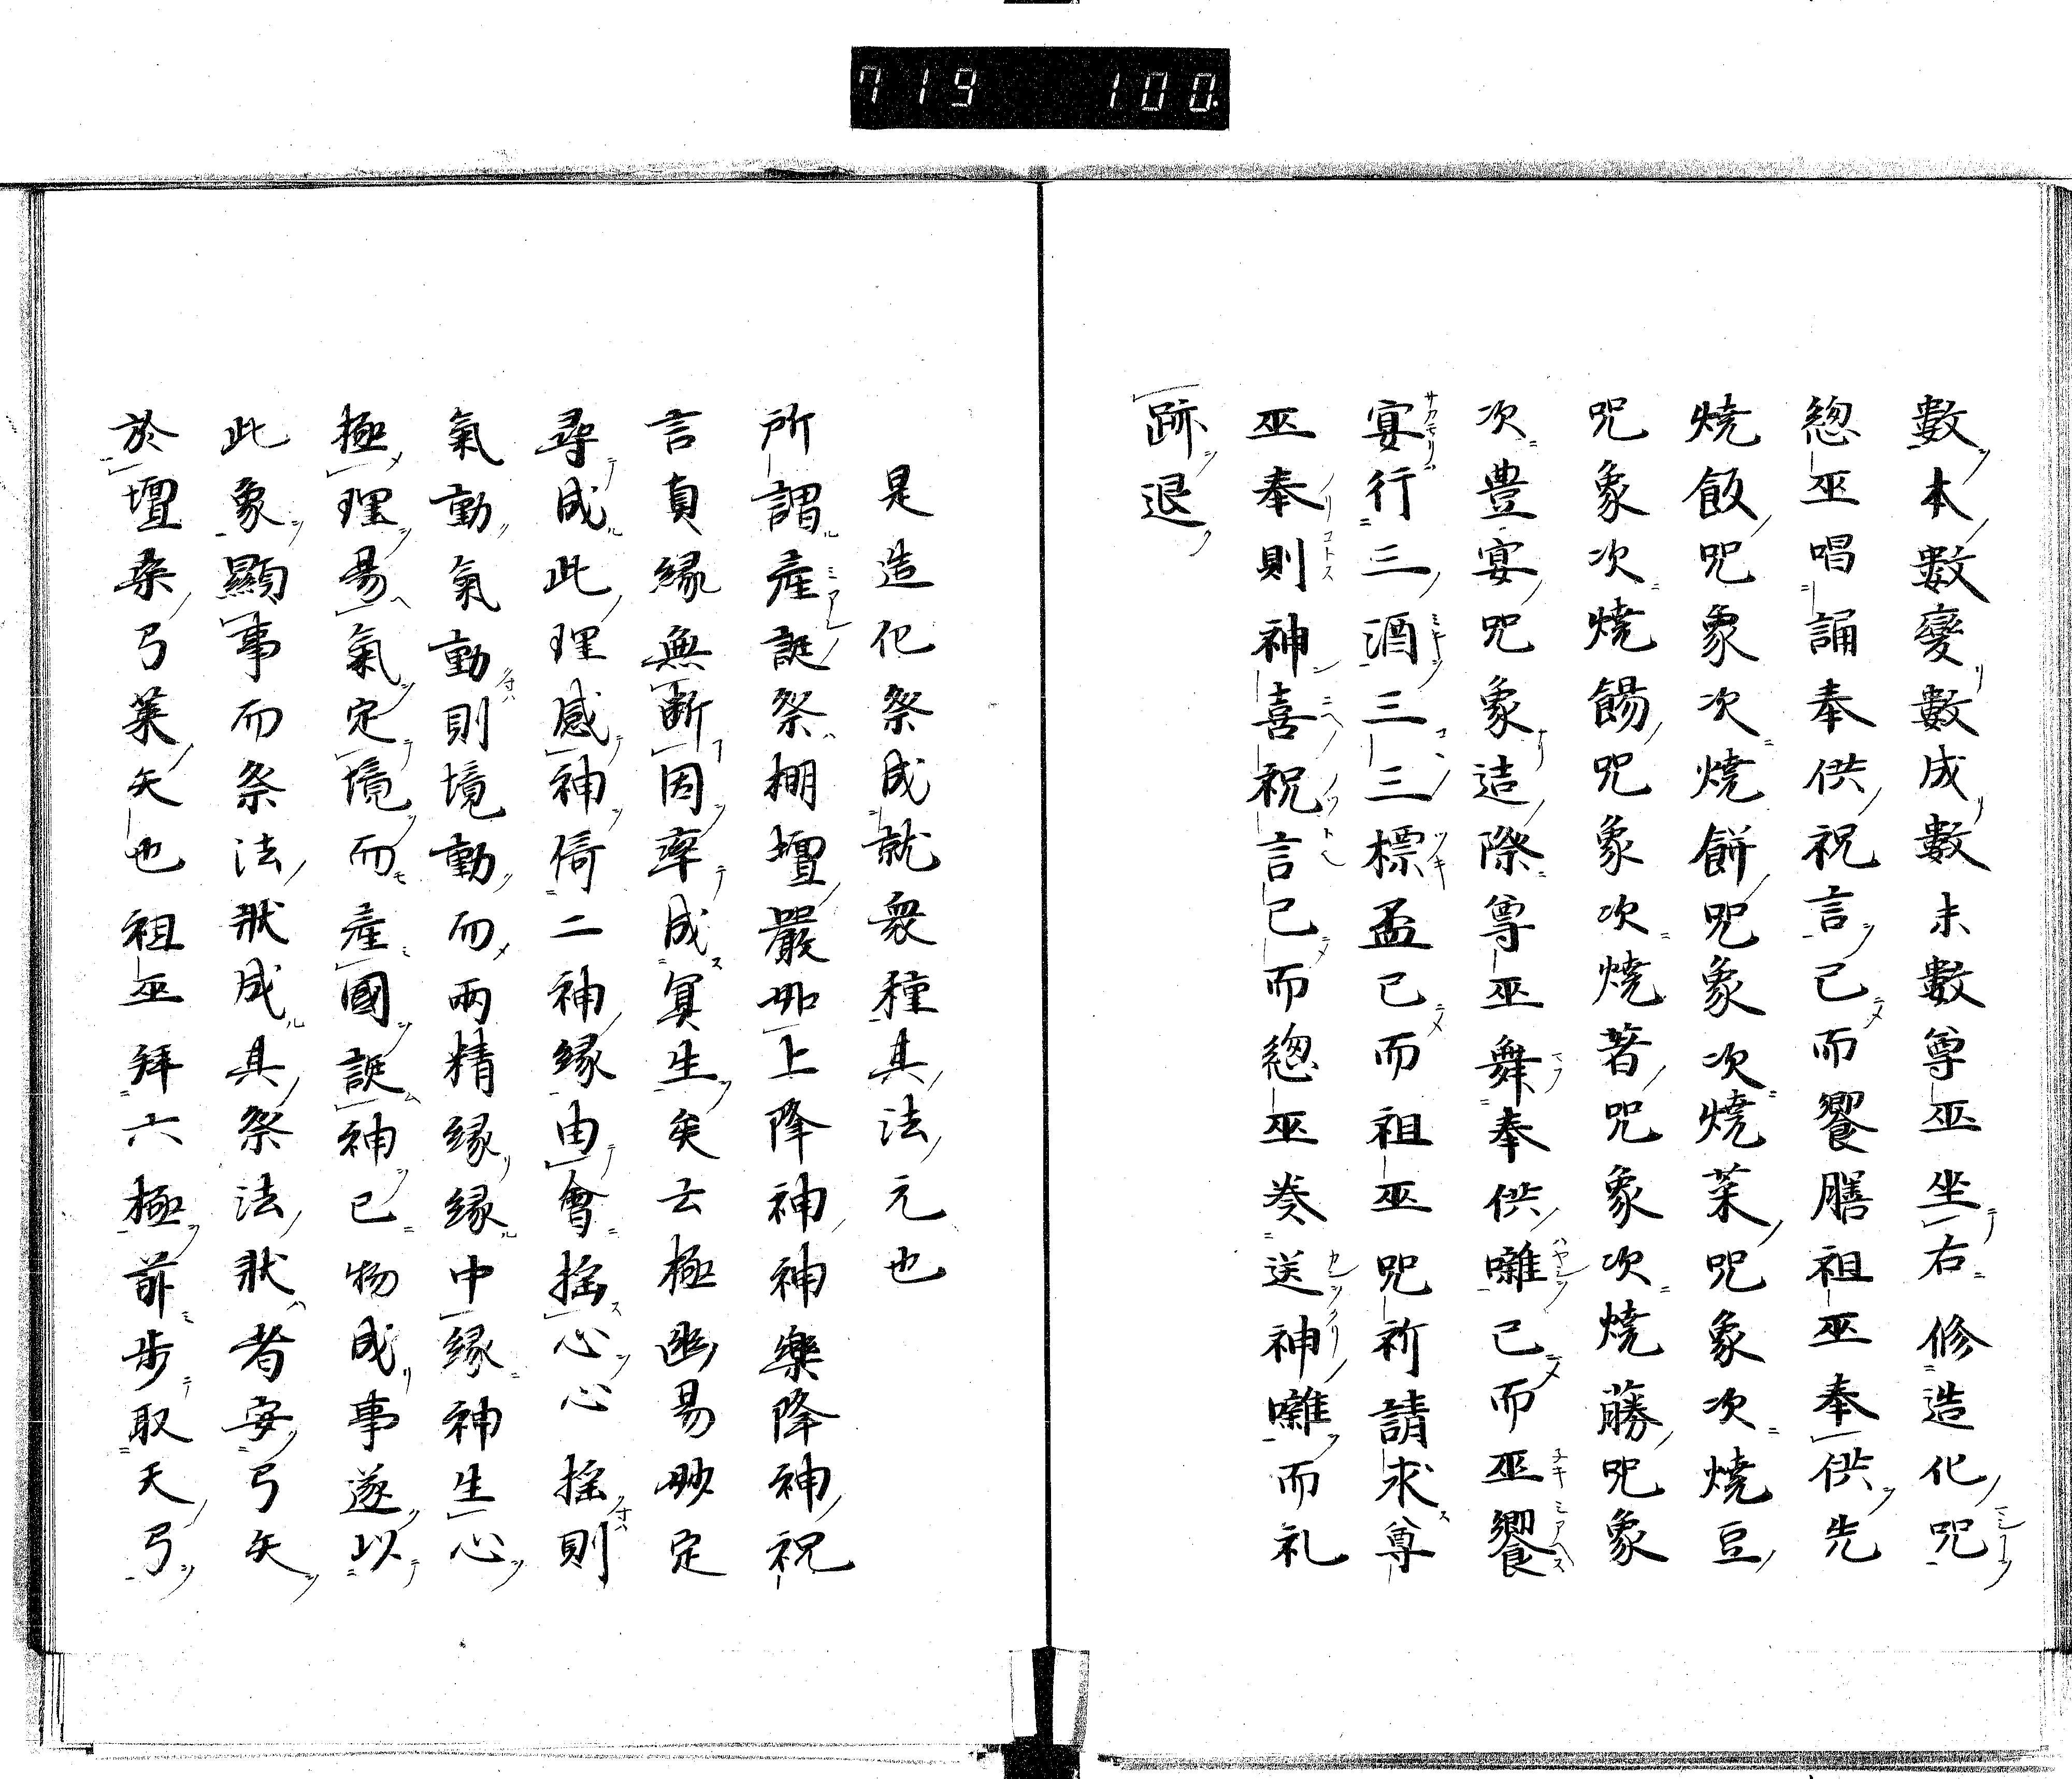 719 100.
數本數變數成數末數尊巫坐右修造化咒
總巫唱誦奉供祝言已而饗膳祖巫奉供先
燒飯咒象次燒餅咒象次燒菓咒象次燒豆
咒象次燒餳咒象次燒著咒象次燒藤咒象
次豊宴咒象造際尊巫舞奉供囃已而巫饗
宴行三酒三三標盃已而祖巫咒祈請求尊
巫奉則神喜祝言已而總巫奏送神囃而礼
跡退
是造化祭成就衆種其法元也
所謂產誕祭棚壇嚴如上降神神樂降神祝
言真緣無断因率成冥生矣云極幽易妙定
尋成此理感神倚二神緣由會搖心心搖則
氣動氣動則境動而兩精緣緣中緣神生心
極理易氣定境而產國誕神已物成事遂以
此象顯事而祭法狀成其祭法狀者安弓矢
於壇桑弓葉矢也祖巫拜六極前步取天弓